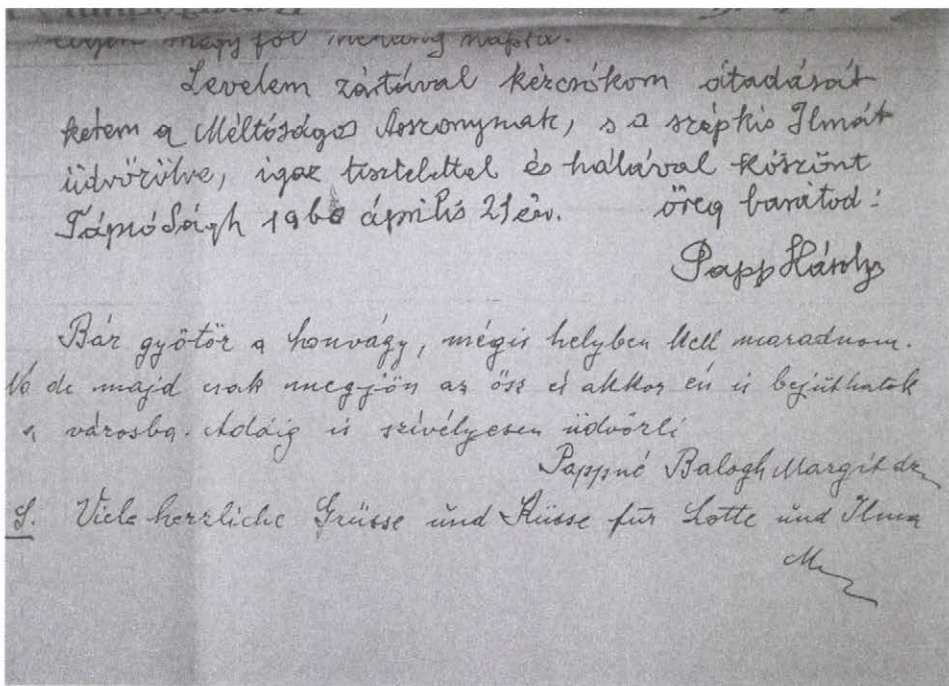 négy föl
Levelem zártával kézcsókom átadását
kérem a Méltóságos Asszonynak, s a szép kis Ilmát
üdvözölve, igaz tisztelettel és hálával köszönt
TápióSágh 1960 április 21én. öreg barátod:
Papp Károly
Bár gyötör a honvágy, mégis helyben kell maradnom.
No de majd csak megjön az ősz és akkor én is bejuthatok
a városba. Addig is szívélyesen üdvözli
Pappné Balogh Margit dr
S. Viele herzliche Grüsse und Küsse für Lotte und Ilma
M